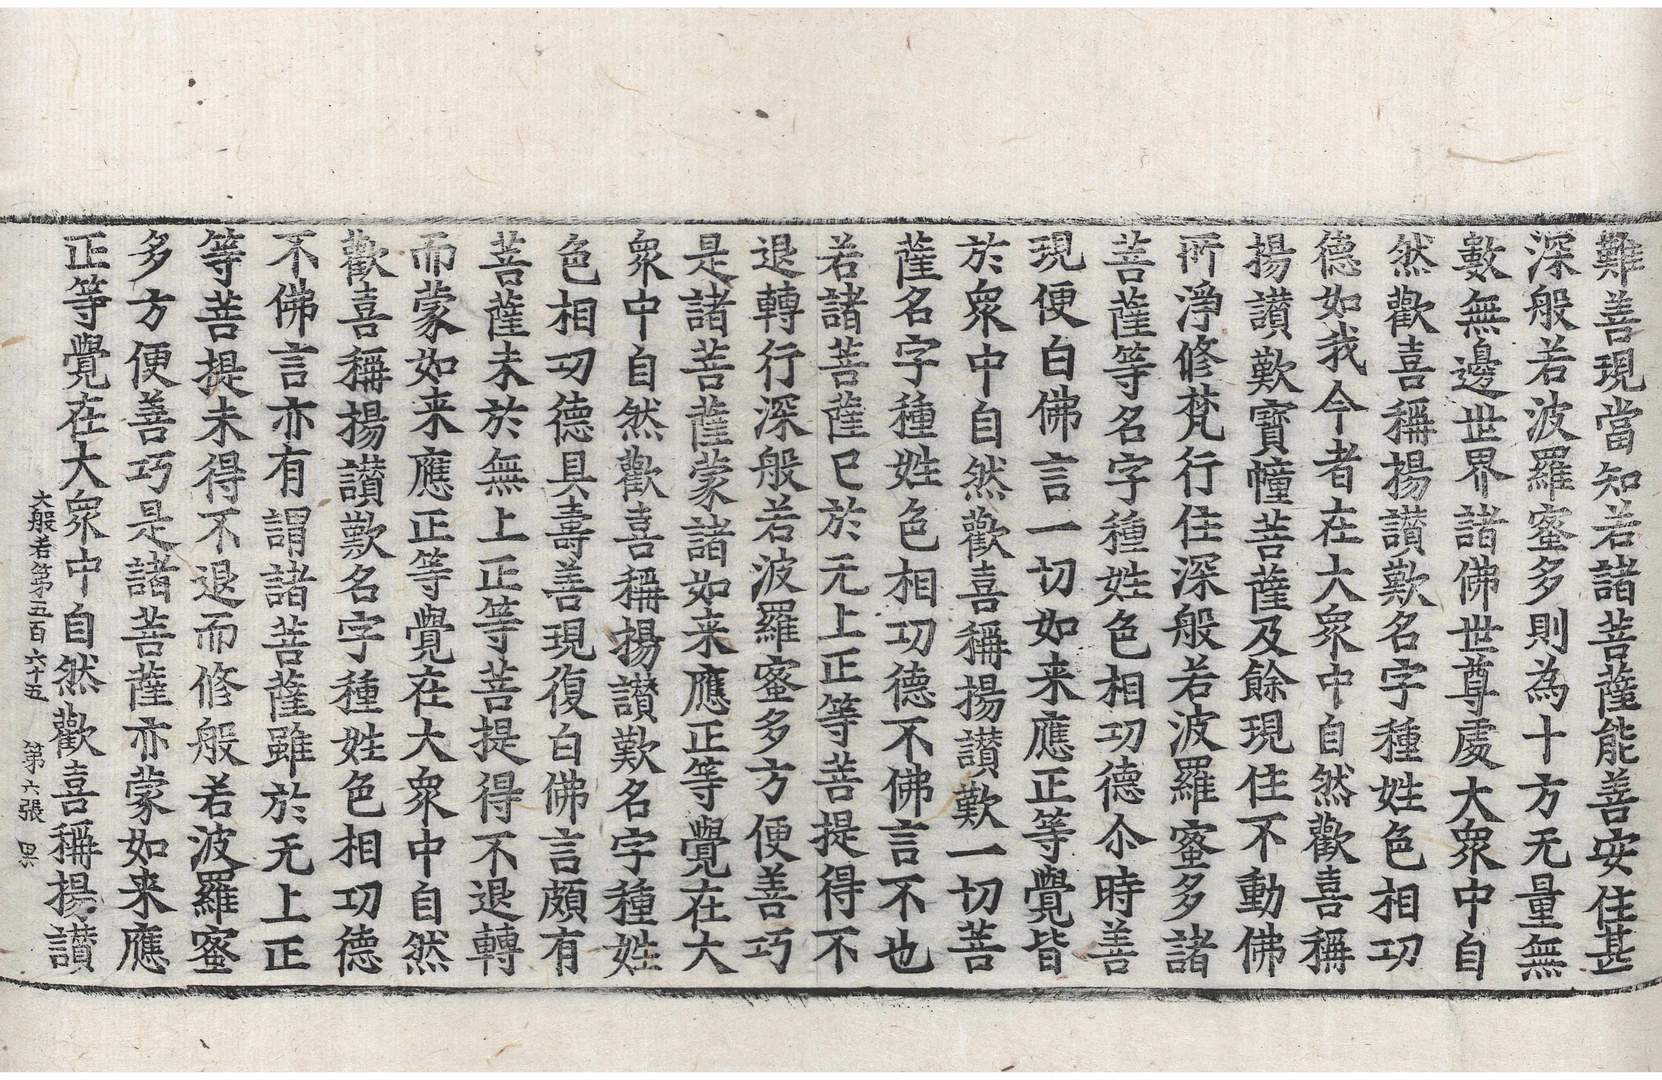 難善現當知若諸菩薩能善安住甚
深般若波羅蜜多則為十方无量無
數無邊世界諸佛世尊處大衆中自
然歡喜稱揚讃歎名字種姓色相功
德如我今者在大衆中自然歡喜稱
揚讃歎寶幢菩薩及餘現住不動佛
所淨修梵行住深般若波羅蜜多諸
菩薩等名字種姓色相功德尒時善
現便白佛言一切如来應正等覺皆
於衆中自然歡喜稱揚讃歎一切菩
薩名字種姓色相功德不佛言不也
若諸菩薩已於无上正等菩提得不
退轉行深般若波羅蜜多方便善巧
是諸菩薩蒙諸如来應正等覺在大
衆中自然歡喜稱揚讃歎名字種姓
色相功德具壽善現復白佛言頗有
菩薩未於無上正等菩提得不退轉
而蒙如来應正等覺在大衆中自然
歡喜稱揚讃歎名字種姓色相功德
不佛言亦有謂諸菩薩雖於无上正
等菩提未得不退而修般若波羅蜜
多方便善巧是諸菩薩亦蒙如来應
正等覺在大衆中自然歡喜稱揚讃
大般若第五百六十五 第六張 果